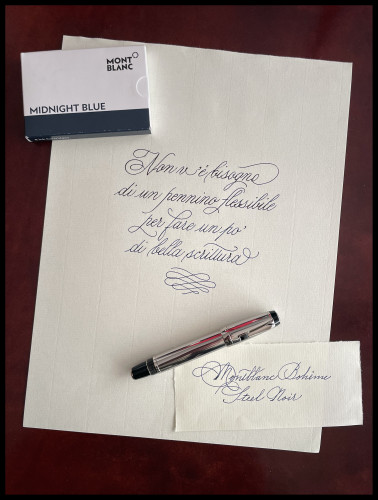 MONT
BLANC
MIDNIGHT BLUE
Non v'è bisogno
di un pennino flessibile
per fare un po'
di bella scrittura
Montblanc Bohème
Steel Noir